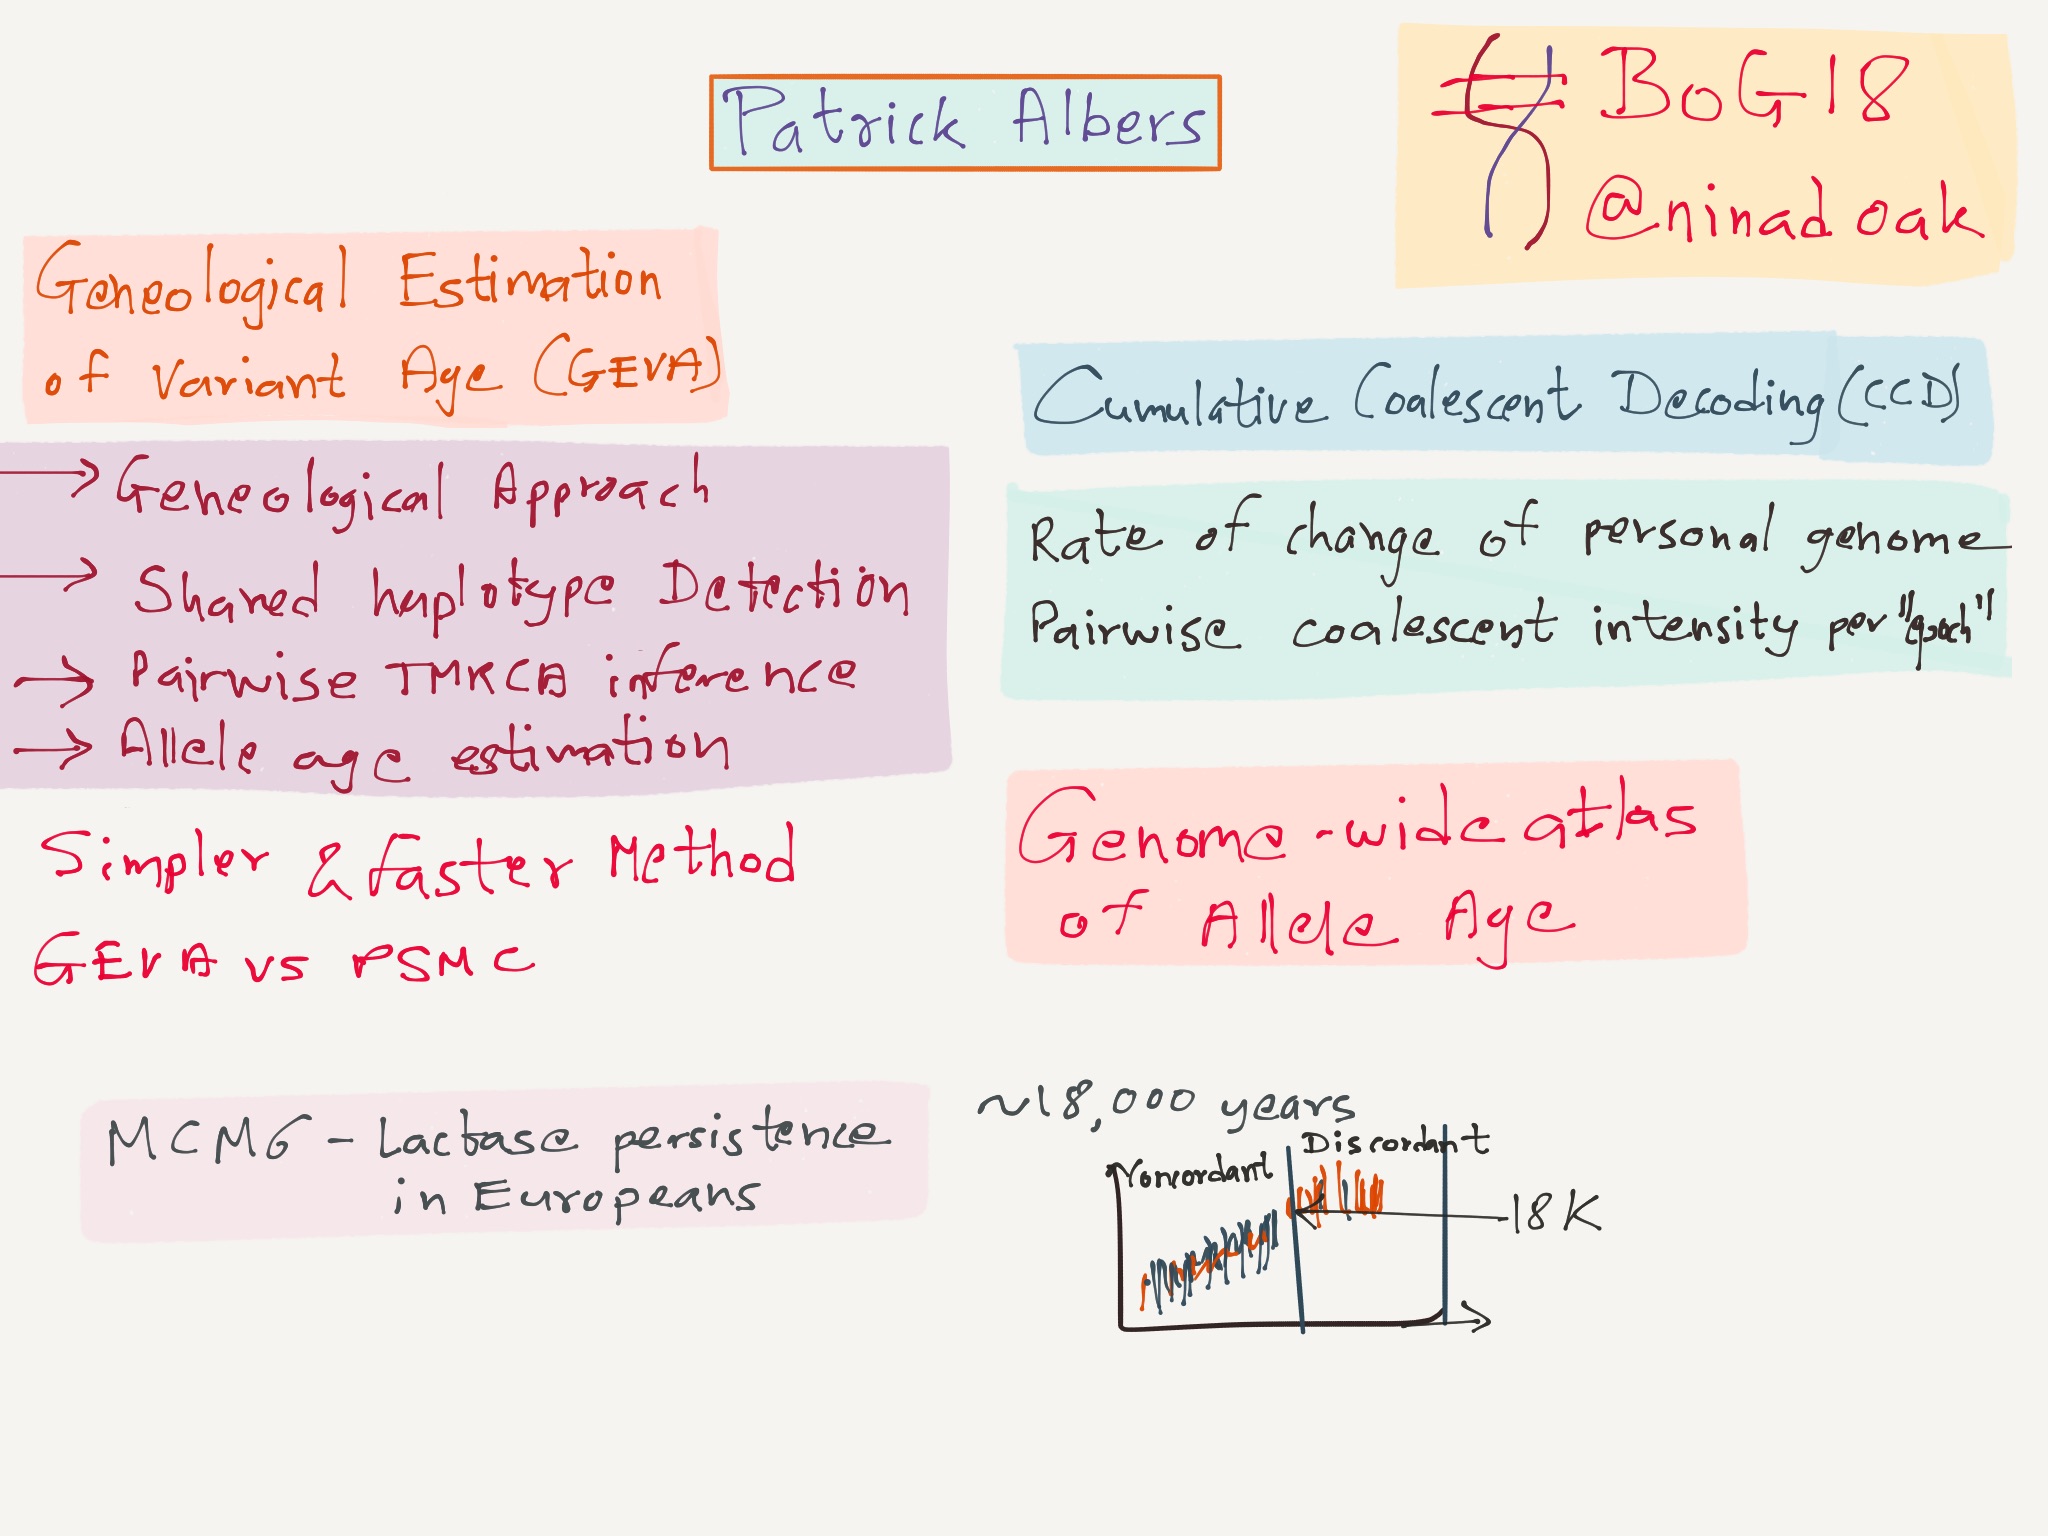 Patrick Albers
# BoG18
@ninadoak
Geneological Estimation
of Variant Age (GEVA)
→ Geneological Approach
→ Shared haplotype Detection
→ Pairwise TMRCA inference
→ Allele age estimation
Simpler & faster Method
GEVA vs PSMC
Cumulative Coalescent Decoding (CCD)
Rate of change of personal genome
Pairwise coalescent intensity per "epoch"
Genome-wide atlas
of Allele Age
MCM6 - Lactase persistence
in Europeans
~18,000 years
Concordant
Discordant
18K